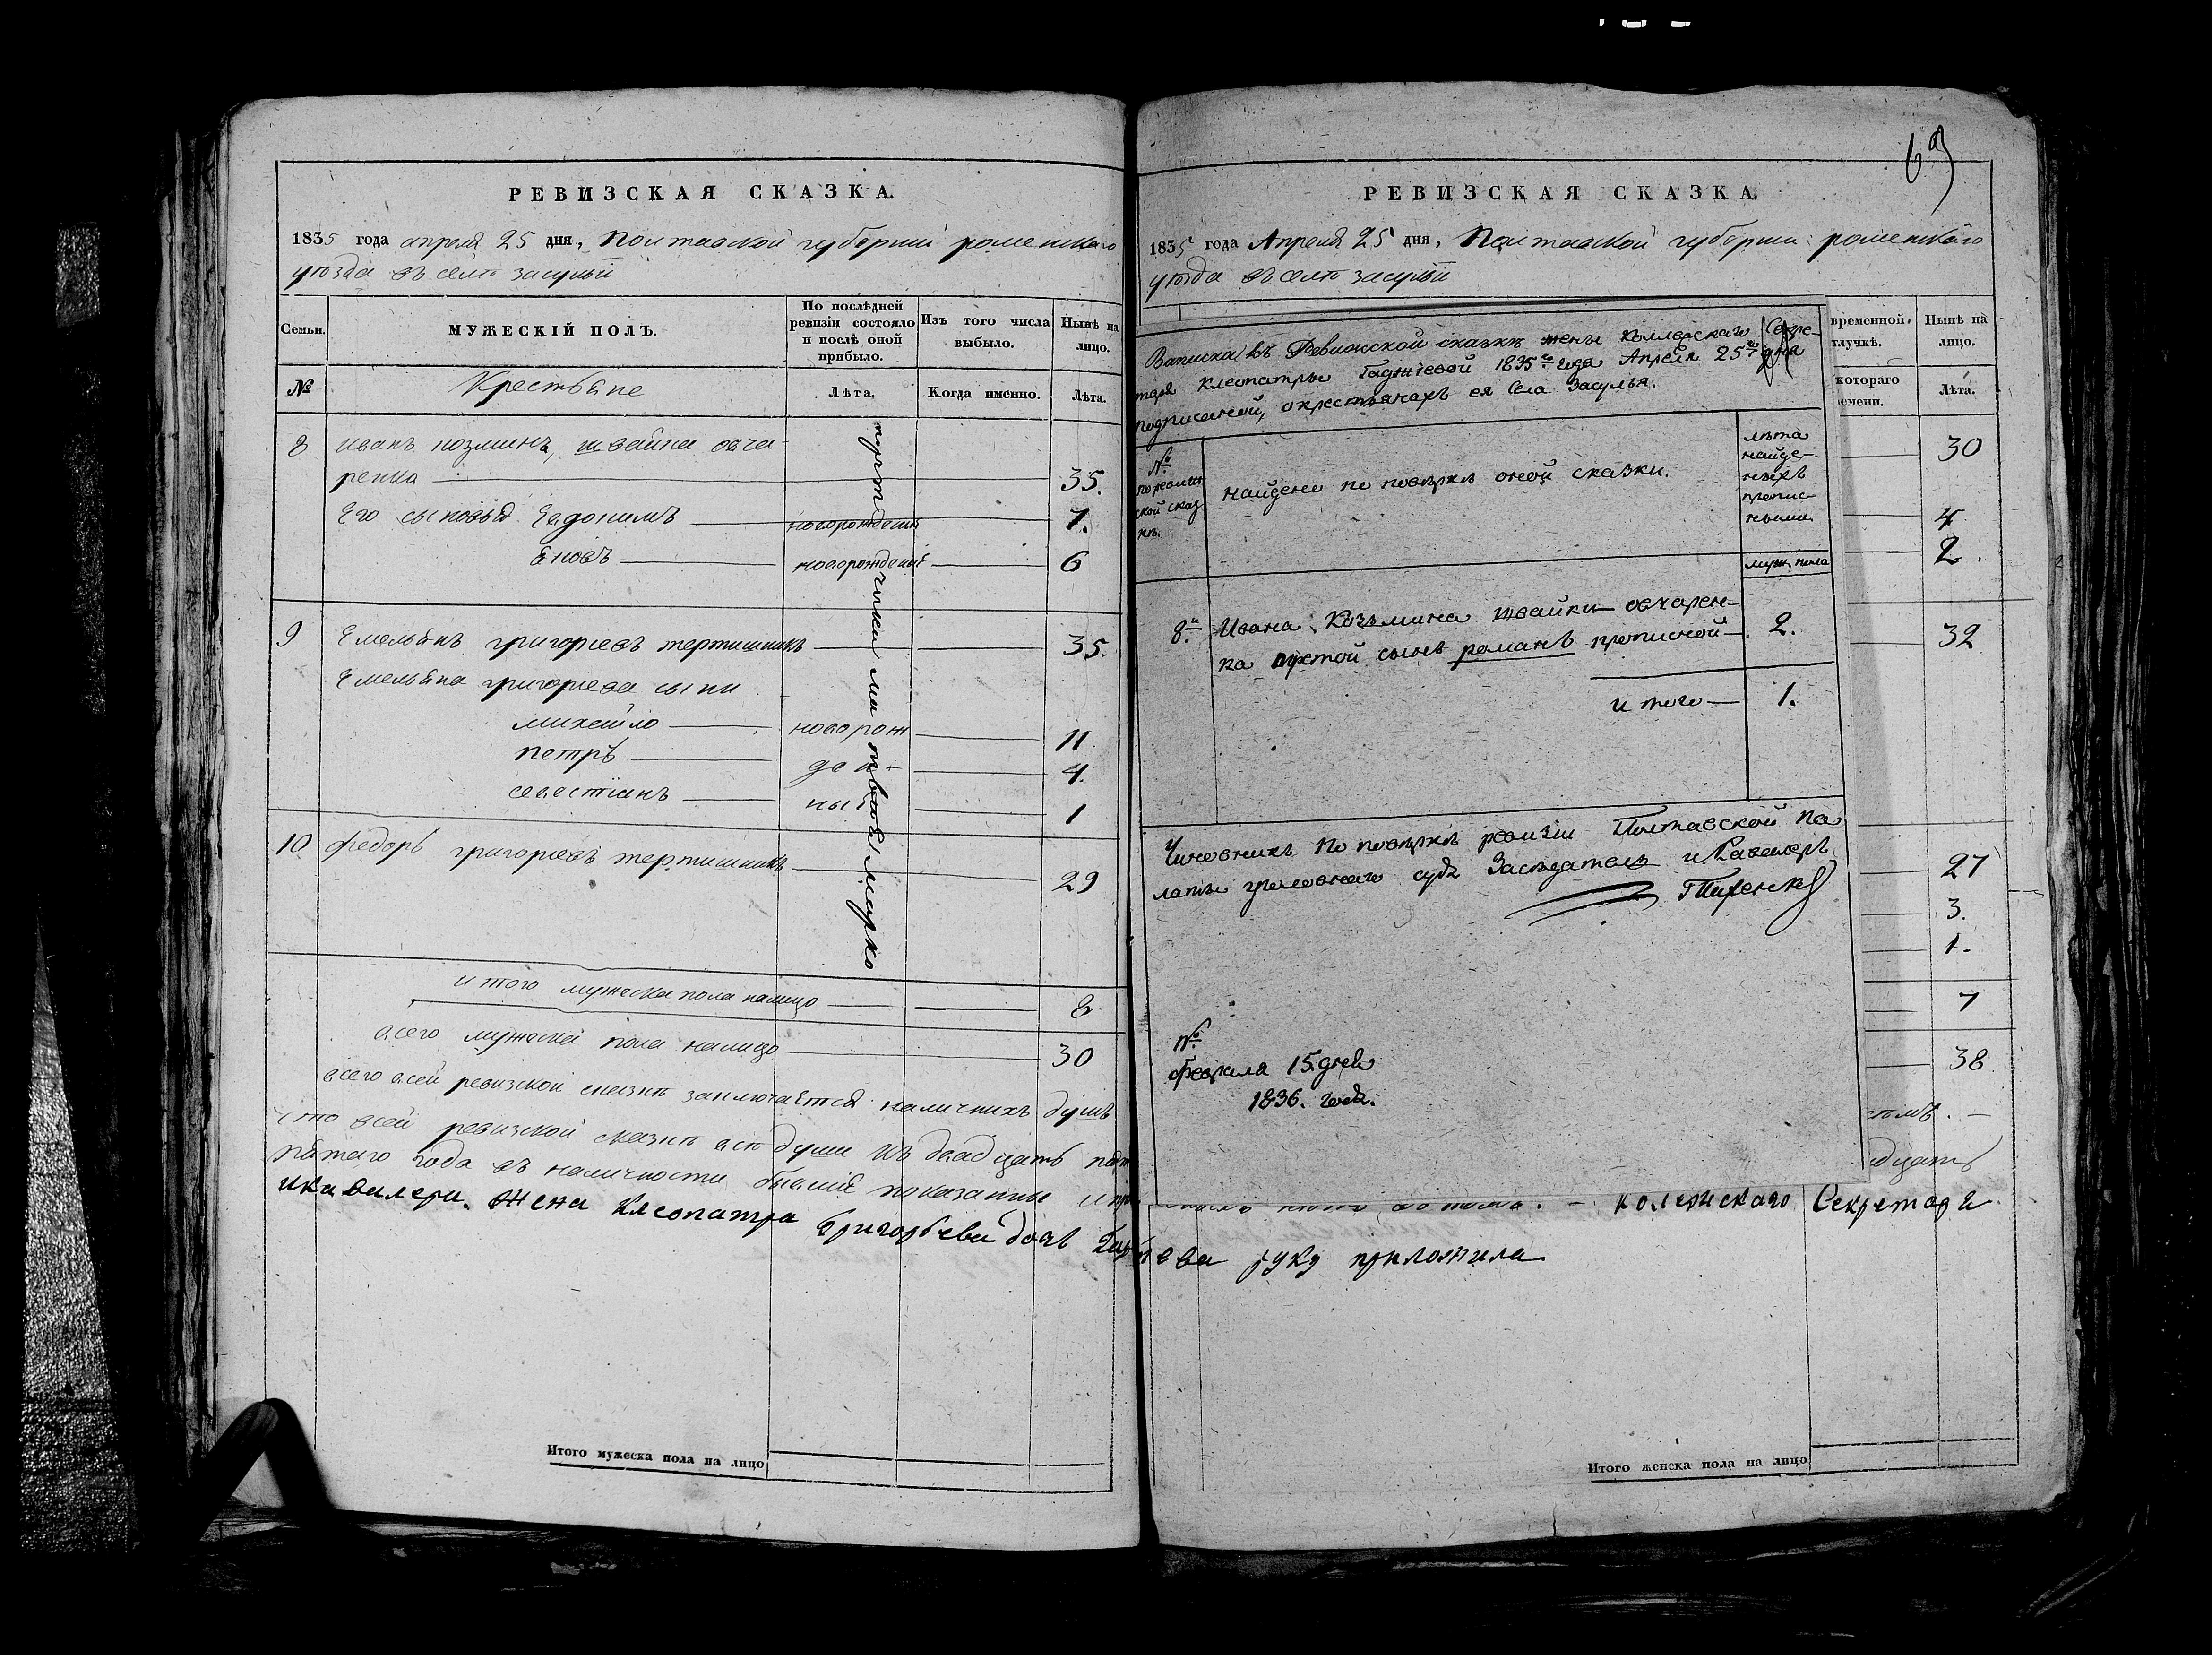 РЕВИЗСКАЯ СКАЗКА.
1835 года апреля 25 дня, Полтавской губернии роменскаго
уѣзда въ селѣ засульи
Семьи.
МУЖЕСКІЙ ПОЛЪ.
По послѣдней ревизіи состояло и послѣ оной прибыло.
Изъ того числа выбыло.
Нынѣ на лицо.
№
Крестьяне
Лѣта.
Когда именно.
Лѣта.
8 иванъ козминъ, швайка овча-
ренко 35.
Его сыновья Евдокимъ новорожденый 7.
новорожденый 6
9 Емельянъ григориевъ тертишникъ 35.
Емельяна григориева сыни
михайло новорож 11
петръ ден- 4.
севестіянъ ныі 1
10 федоръ григориевъ тертишникъ 29
итого мужеска пола налицо 8
всего мужеска пола налицо 30
всего всей ревизской сказкѣ заключается наличнихъ душъ
что всей ревизской сказкѣ всѣ души къ двадцать
пятаго года въ наличности бывшіе показанны и
жена Клеопатра Григорьева дочь
РЕВИЗСКАЯ СКАЗКА.
1835 года Апреля 25 дня, Полтавской губернии роменскаго
уѣзда въ селѣ засульи
Записка въ Ревижской сказкѣ жены Коллежскаго Секре-
таря Клеопатры Гаджіевой 1835го года Апреля 25го дня
подписанной, о крестьянахъ ея села Засулья.
№
по ревиж
ской сказ
кѣ.
найдено по повѣркѣ оной сказки.
лѣта
найде-
ныхъ
пропис-
ными
муж. пола
8й Ивана Козьмина швайки овчарен-
ка сынъ романъ прописной 2.
итого 1.
Чиновникъ по повѣркѣ ревизіи Полтавской Па
латы уголовнаго суда Засѣдатель и Кавалеръ
№
февраля 15. дня
1836. года.
временной
тлучкѣ.
котораго
ремени.
Нынѣ на лицо.
Лѣта.
30
4
2.
32
27
3.
1.
7
38
колежскаго Секретаря
руку приложила
Итого мужеска пола на лицо
Итого женска пола на лицо